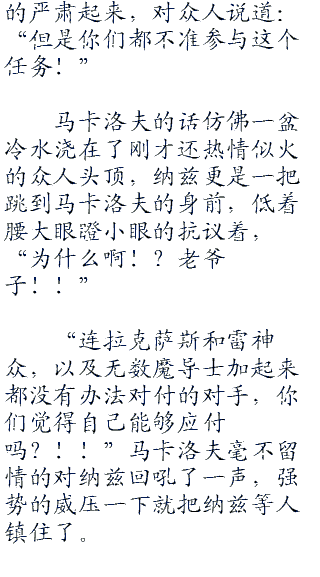 的严肃起来，对众人说道：
“但是你们都不准参与这个
任务！”
马卡洛夫的话仿佛一盆
冷水浇在了刚才还热情似火
的众人头顶，纳兹更是一把
跳到马卡洛夫的身前，低着
腰大眼蹬小眼的抗议着，
“为什么啊！？老爷
子！！”
“连拉克萨斯和雷神
众，以及无数魔导士加起来
都没有办法对付的对手，你
们觉得自己能够应付
吗？！！”马卡洛夫毫不留
情的对纳兹回吼了一声，强
势的威压一下就把纳兹等人
镇住了。